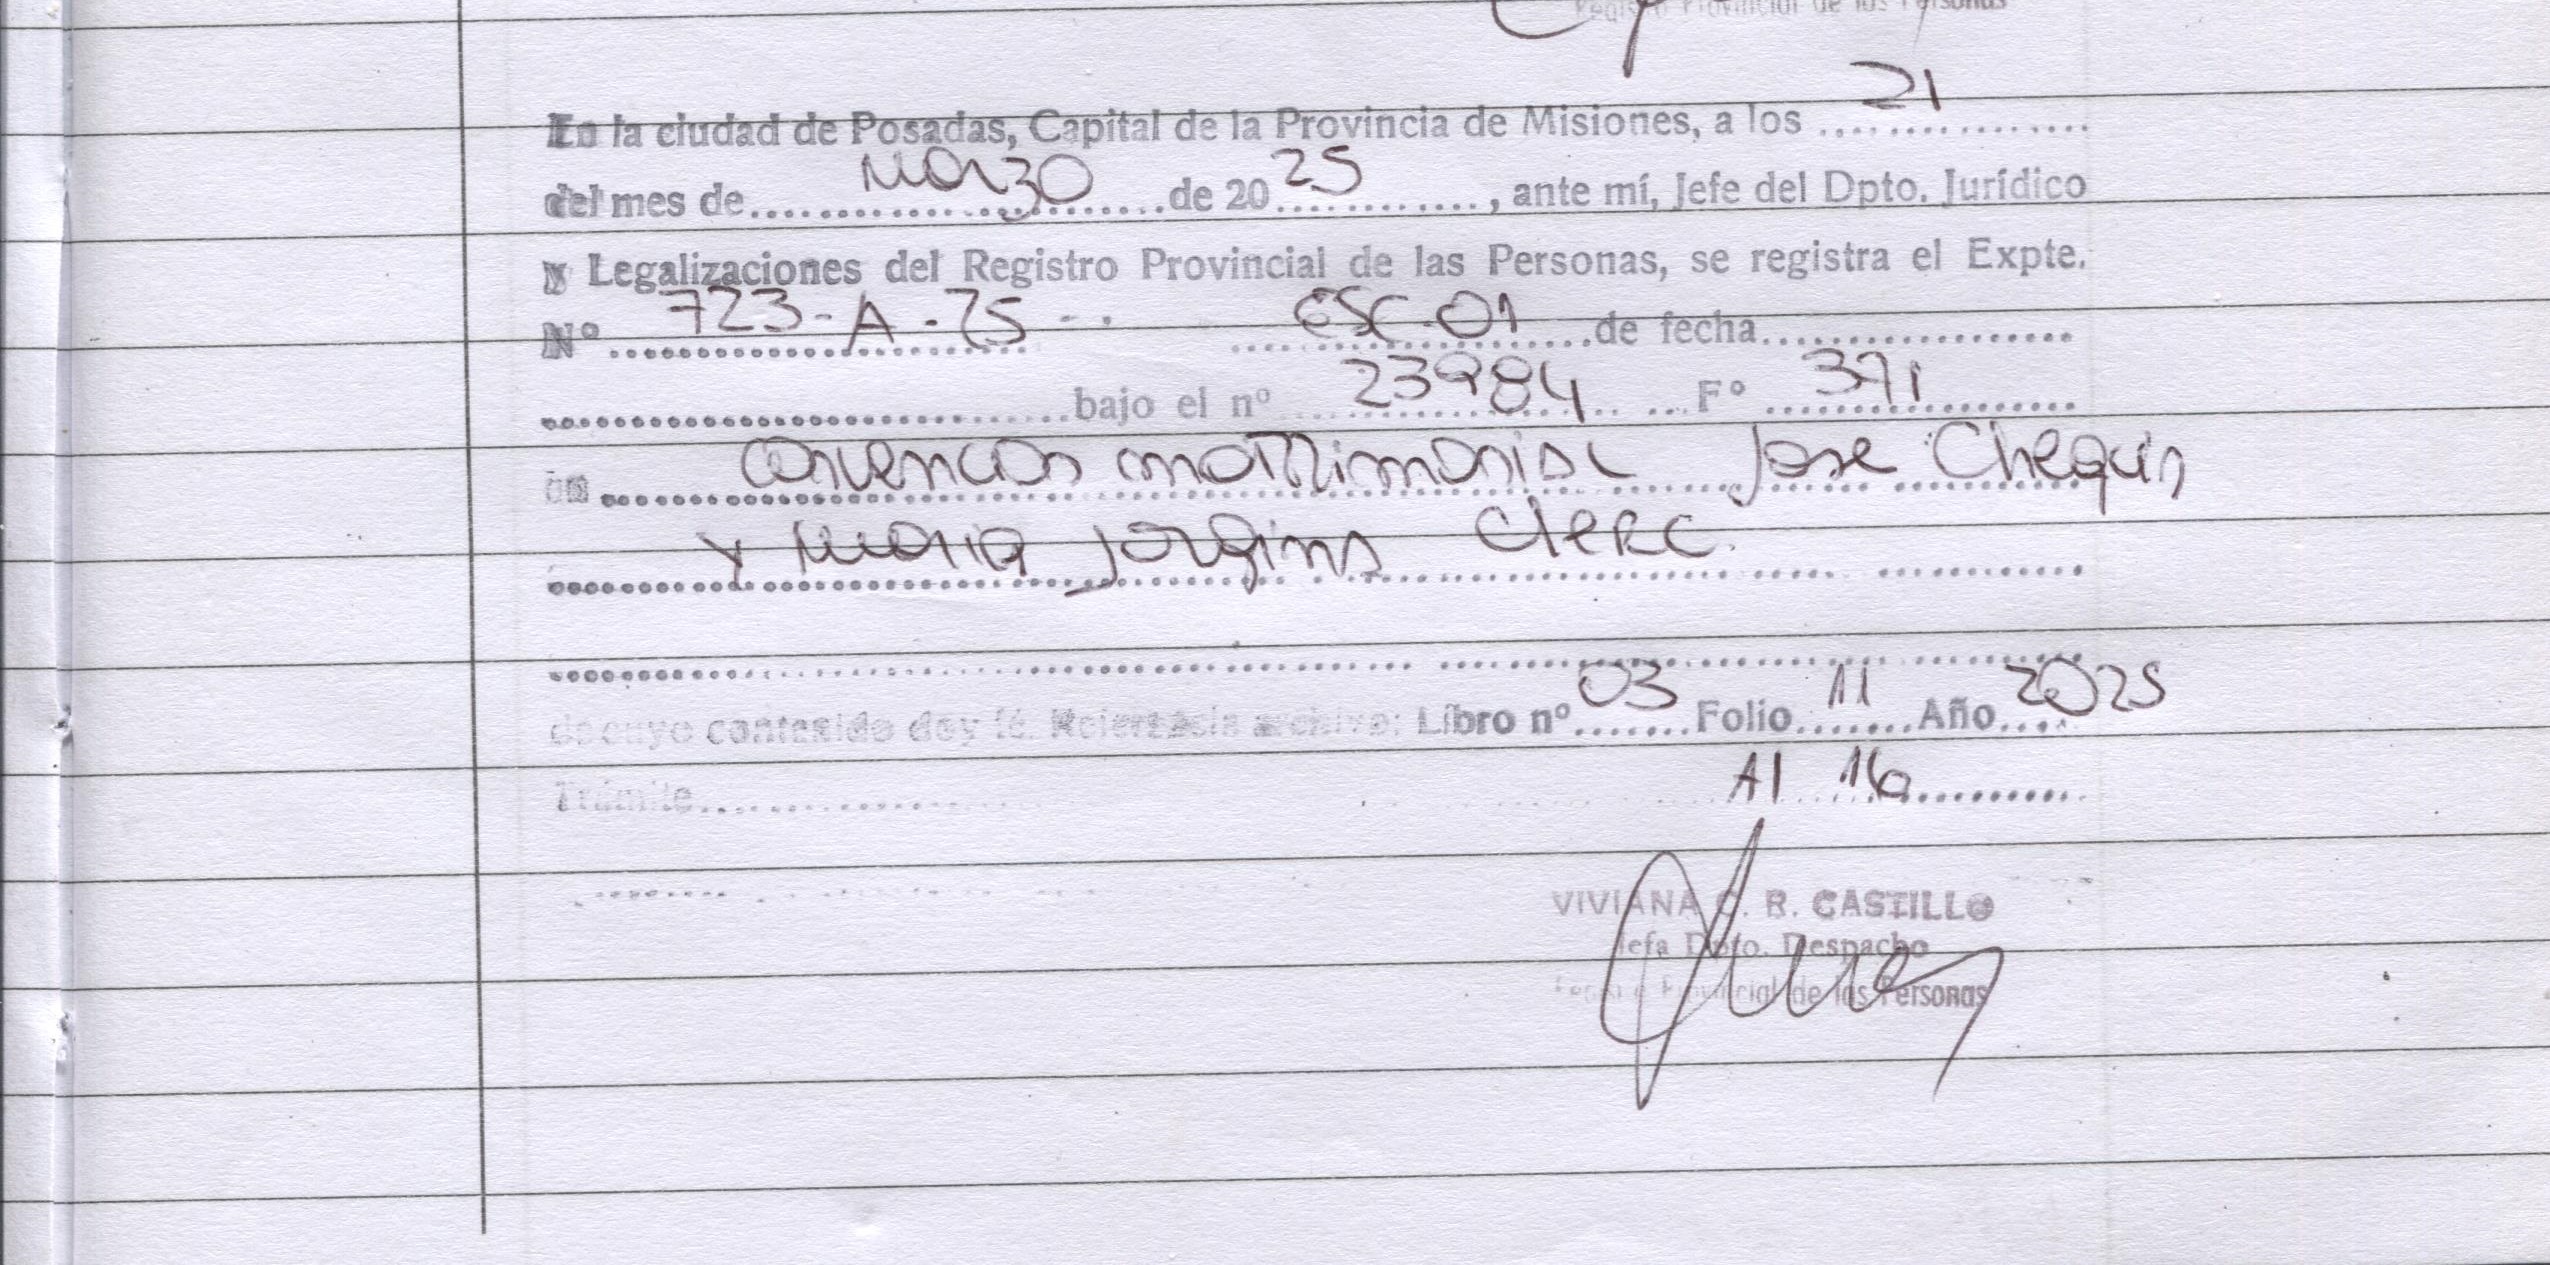 Registro Provincial de las Personas
En la ciudad de Posadas, Capital de la Provincia de Misiones, a los 21
del mes de Marzo de 20 25, ante mí, Jefe del Dpto. Jurídico
y Legalizaciones del Registro Provincial de las Personas, se registra el Expte.
Nº 723-A-25 -. ESC.01 de fecha
bajo el nº 23984 Fº 371
un convencion matrimonial Jose Chequin
y Maria Jorgina Clerc.
de cuyo contenido doy fé. Referencia archivo: Libro nº 03 Folio 11 Año 2025
Trámite Al 16
VIVIANA C. R. CASTILLO
Jefa Dpto. Despacho
Registro Provincial de las Personas